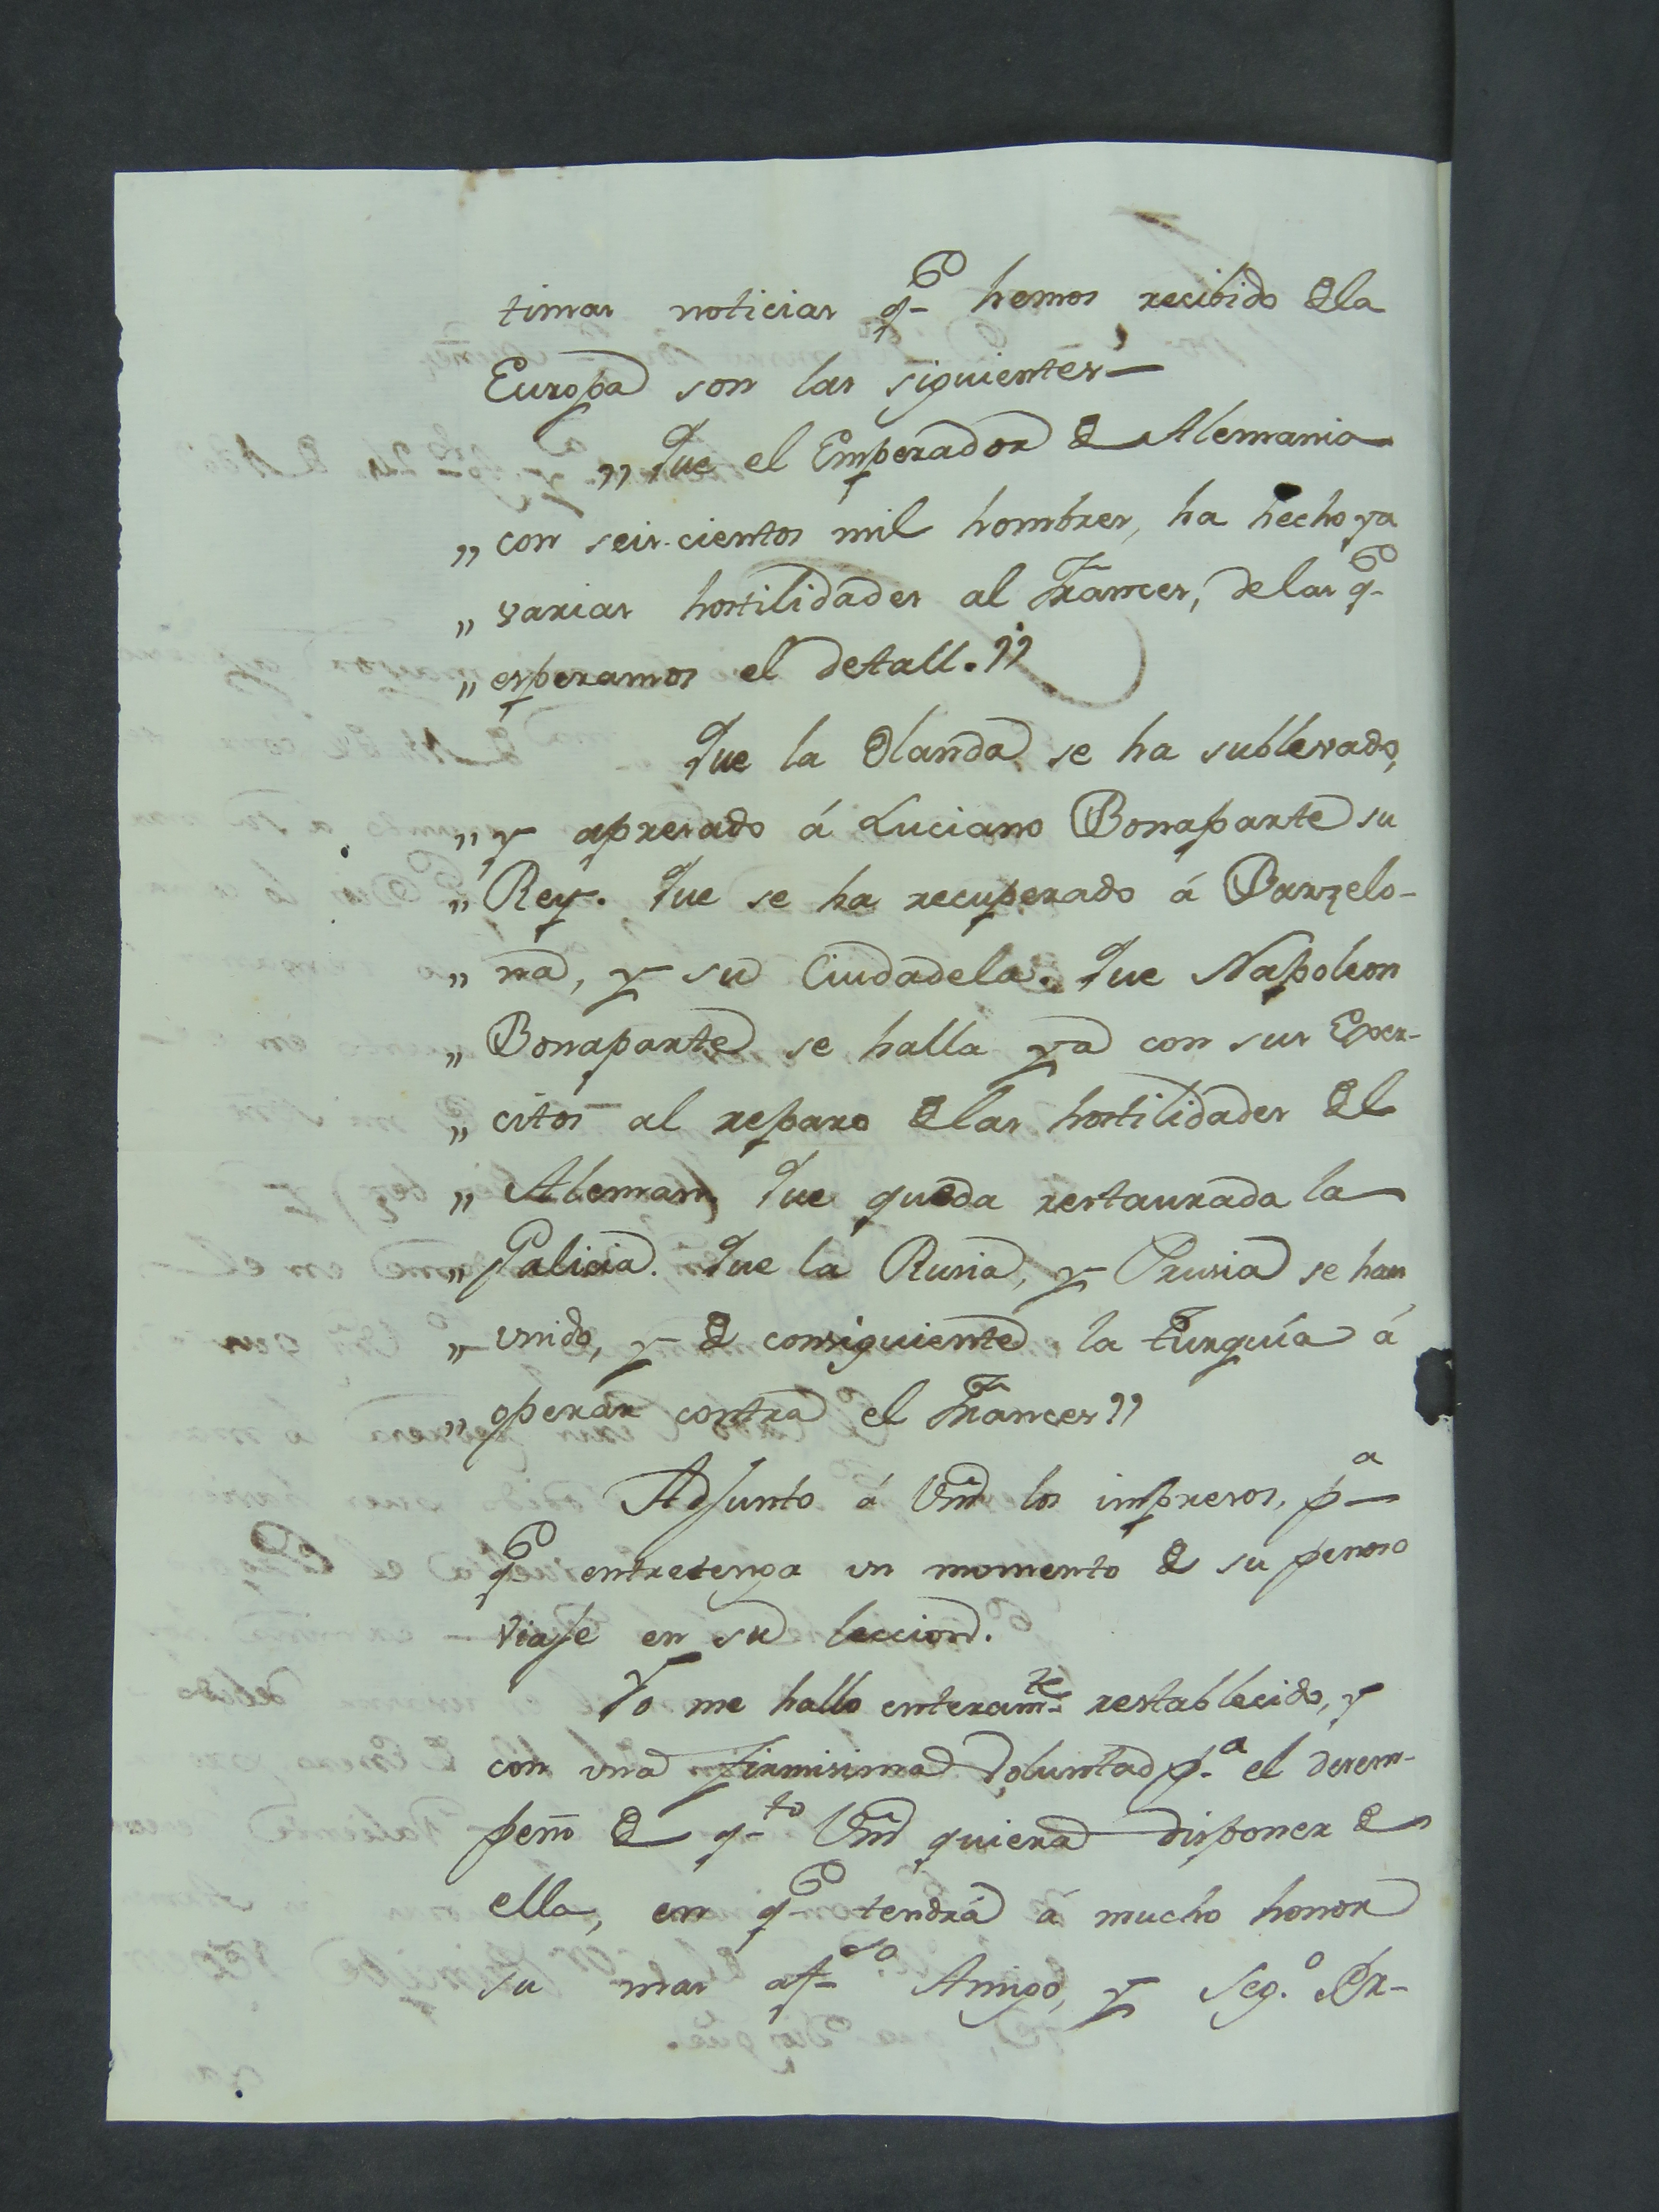 timas noticias q.e hemos recibido de la
Europa son las siguientes—
„ Que el Emperador de Alemania
„ con seis-cientos mil hombres, ha hecho ya
„ varias hostilidades al Frances, de las q.e
„ esperamos el detall.”
Que la Olanda se ha sublevado,
„ y apresado á Luciano Bonaparte su
„ Rey. Que se ha recuperado á Barzelo-
„ na, y su Ciudadela. Que Napoleon
„ Bonaparte se halla ya con sus Exer-
„ citos al reparo de las hostilidades del
„ Aleman, Que queda restaurada la
„ Galicia. Que la Rusia, y Prusia se han
„ unido, y de consiguiente la Turquía á
„ operar contra el Frances”
Adjunto á Vmd los impresos, p.a
q.e entretenga un momento de su penoso
viaje en su leccion.
Yo me hallo enteram.te restablecido, y
con una firmisima voluntad p.a el desem-
peño de q.to Vmd quiera disponer de
ella, en q.e tendrá á mucho honor
su mas af.so Amigo, y seg.o